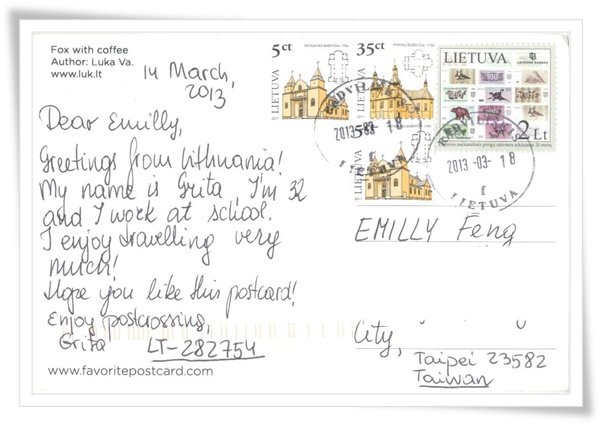 Fox with coffee
Author: Luka Va.
www.luk.lt
14 March,
2013
Dear Emilly,
Greetings from Lithuania!
My name is Grita, I'm 32
and I work at school.
I enjoy travelling very
much!
Hope you like this postcard!
Enjoy postcrossing,
Grita
LT-282754
www.favoritepostcard.com
5ct
LIETUVA
35ct
LIETUVA
5ct
LIETUVA
LIETUVOS BANKAS
LIETUVA
2 Lt
2013-03-18
LIETUVA
2013-03-18
LIETUVA
EMILLY Feng
City,
Taipei 23582
Taiwan